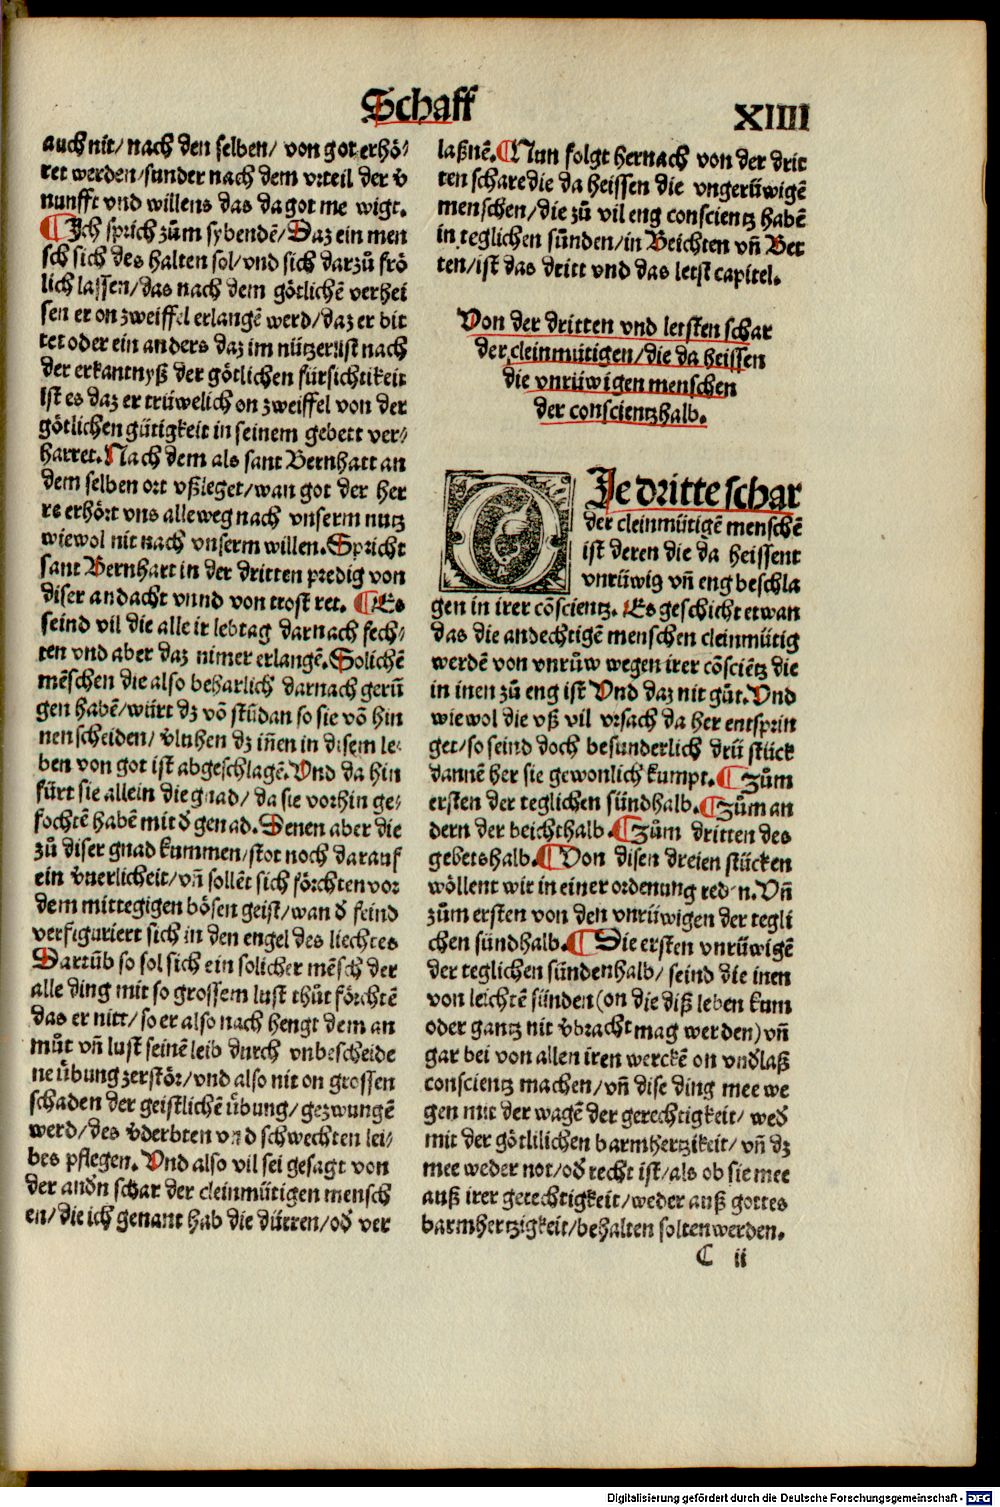 Schaff
XIIII
auch nit/ nach den selben/ von got erhö⸗
ret werden/sunder nach dem vrteil der v̄
nunfft vnd willens das da got me wigt.
¶Ich sprich zům sybendē/Daz ein men
sch sich des halten sol/vnd sich darzů frö
lich lassen/das nach dem götlichē verhei
sen er on zweiffel erlangē werd/daz er bit
tet oder ein anders daz im nützer ist nach
der erkantnyß der götlichen fürsichtikeit
Ist es daz er trüwelich on zweiffel von der
götlichen gütigkeit in seinem gebett ver⸗
harret. Nach dem als sant Bernhatt an
dem selben ort vßleget/wan got der her
re erhört vns alleweg nach vnserm nutz
wiewol nit nach vnserm willen. Spricht
sant Bernhart in der dritten predig von
diser andacht vnnd von trost ret. ¶Es
seind vil die alle ir lebtag darnach fech⸗
ten vnd aber daz nimer erlangē. Solichē
mēschen die also beharlich darnach gerů
gen habē/würt dz vō stūdan so sie vō hin
nen scheiden/ v̄luhen dz iñen in disem le⸗
ben von got ist abgeschlagē. Vnd da hin
fürt sie allein die gnad/ da sie vorhin ge⸗
fochtē habē mit d̄ genad. Denen aber die
zů diser gnad kummen/stot noch darauf
ein v̄nerlicheit/vñ sollēt sich förchten vor
dem mittegigen bösen geist/wan d̄ feind
verfiguriert sich in den engel des liechtes
Darüb so sol sich ein solicher mēsch der
alle ding mit so grossem lust thůt förchtē
das er nitt/so er also nach hengt dem an
můt vñ lust seinē leib durch vnbescheide
ne übung zerstör/vnd also nit on grossen
schaden der geistlichē übung/gezwungē
werd/des v̄derbten vnd schwechten lei⸗
bes pflegen. Vnd also vil sei gesagt von
der andn̄ schar der cleinmütigen mensch
en/die ich genant hab die dürren/od̄ ver
laßnē. ¶Nun folgt hernach von der drit
ten schare die da heissen die vngerüwigē
menschen/die zů vil eng conscientz habē
in teglichen sünden/in Beichten vñ Bet
ten/ist das dritt vnd das letst capitel.
Von der dritten vnd letsten schar
der cleinmütigen/die da heissen
die vnrüwigen menschen
der conscientzhalb.
DIe dritte schar
der cleinmütigē menschē
ist deren die da heissent
vnrüwig vñ eng beschla
gen in irer cōscientz. Es geschicht etwan
das die andechtigē menschen cleinmütig
werdē von vnrůw wegen irer cōsciētz die
in inen zů eng ist Vnd daz nit gůt. Vnd
wiewol die vß vil vrsach da her entsprin
get/so seind doch besunderlich drü stück
dannē her sie gewonlich kumpt. ¶Zům
ersten der teglichen sündhalb. ¶Zům an
dern der beichthalb. ¶Zům dritten des
gebetshalb. ¶Von disen dreien stücken
wöllent wir in einer ordenung reden. Vñ
zům ersten von den vnrüwigen der tegli
chen sündhalb. ¶Die ersten vnrüwigē
der teglichen sündenhalb/ seind die inen
von leichtē sünden(on die diß leben kum
oder gantz nit v̄bracht mag werden)vñ
gar bei von allen iren werckē on vndlaß
conscientz machen/vñ dise ding mee we
gen mit der wagē der gerechtigkeit/ wed̄
mit der götlilichen barmhertzikeit/ vñ dz
mee weder not/od̄ recht ist/als ob sie mee
auß irer gerechtigkeit/weder auß gottes
barmhertzigkeit/behalten solten werden.
C ii
Digitalisierung gefördert durch die Deutsche Forschungsgemeinschaft - DFG